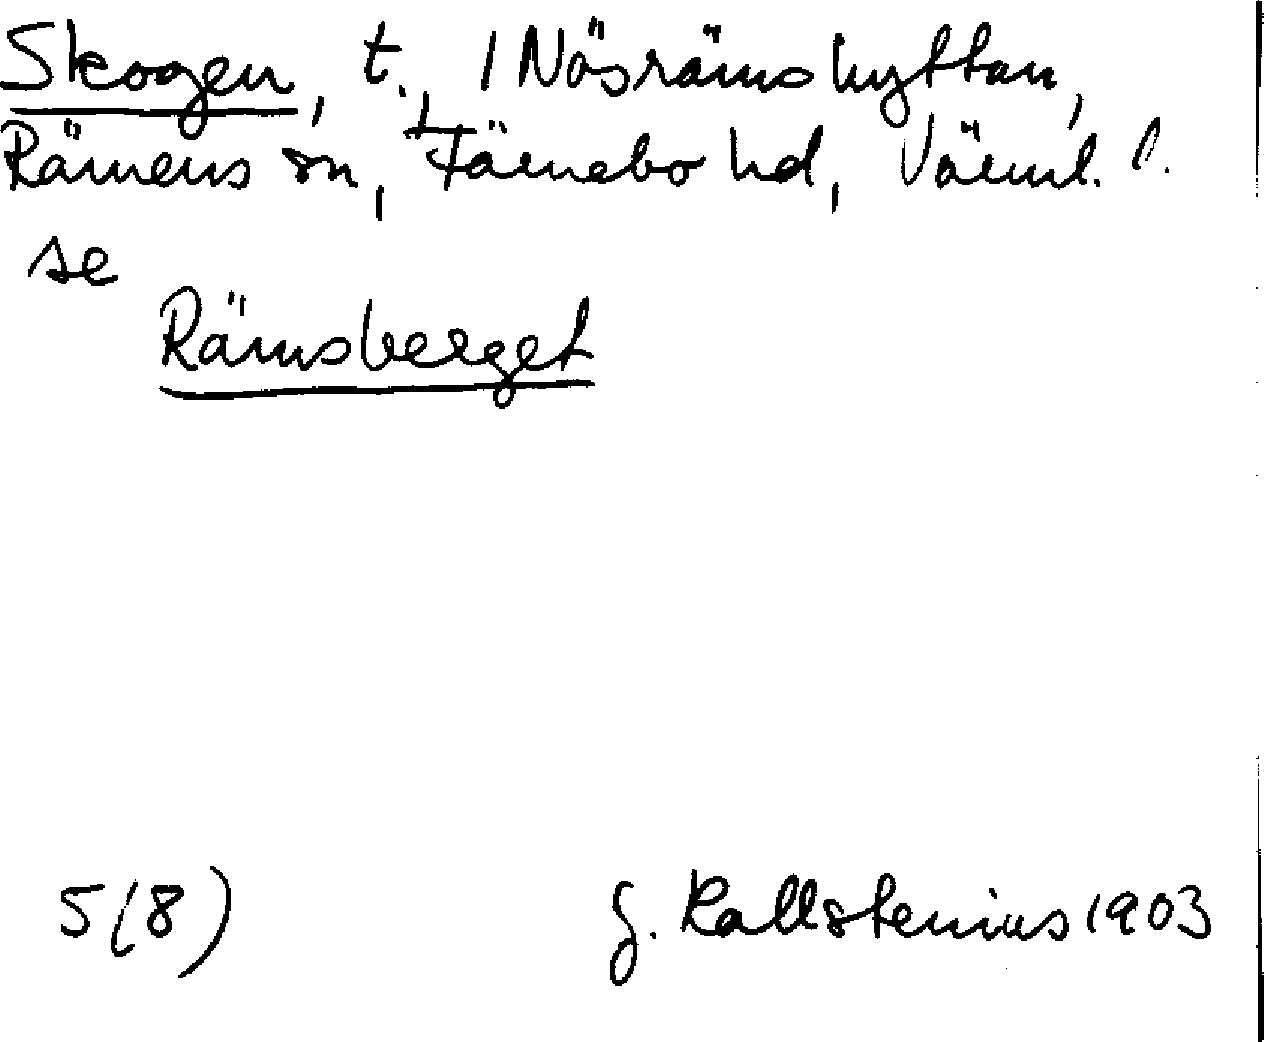 Skogen, t., / Näsrämshyttan,
Rämens sn, Färnebo hd, Värml. l.
se
Rämsberget
5(8) G. Kallstenius 1903